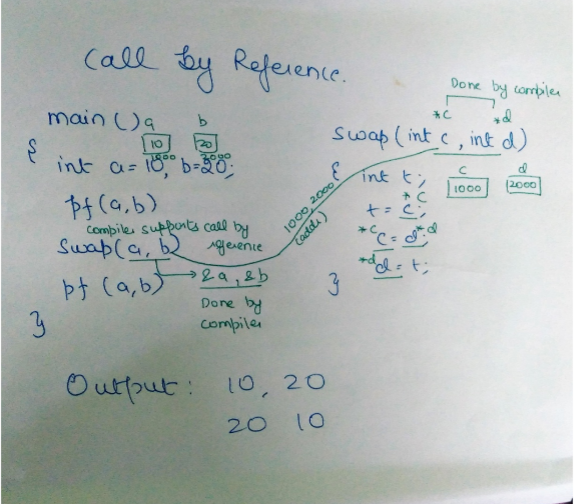 Call by Reference.
Done by compiler
*c *d
main() a b
10 20
1000 2000
swap(int c, int d)
{
int a=10, b=20;
{ int t;
c d
1000 2000
pf(a,b)
t = c;
*c
compiler supports call by
reference
swap(a, b)
1000, 2000
(adds)
c = d;
*c *d
pf (a,b) → &a, &b
d = t;
*d
}
Done by
compiler
}
Output: 10, 20
20 10